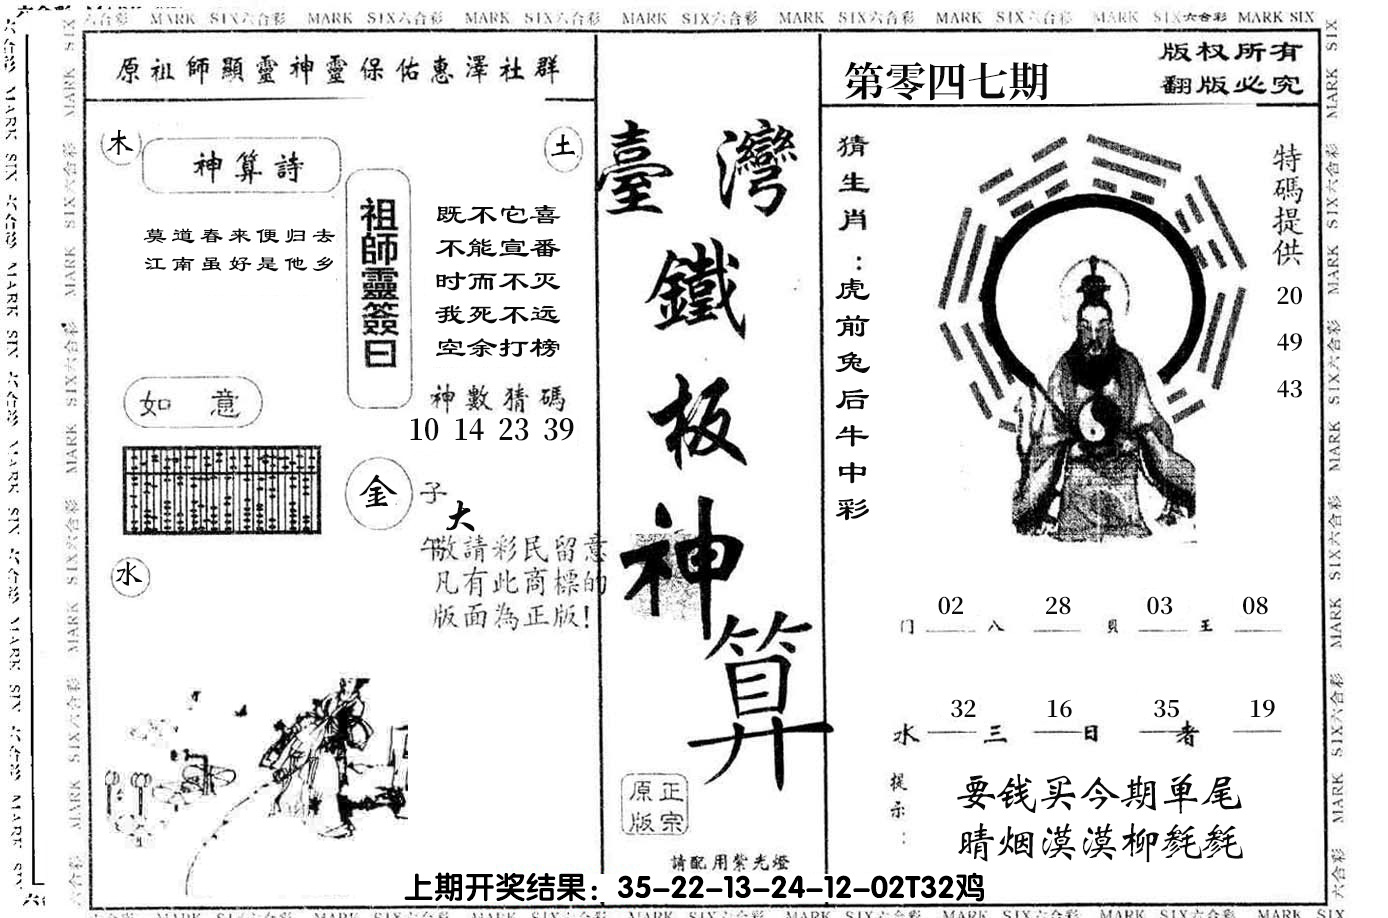 MARK SIX六合彩 MARK SIX六合彩 MARK SIX六合彩 MARK SIX六合彩 MARK SIX六合彩 MARK SIX六合彩 MARK SIX六合彩 MARK SIX
原祖師顯靈神靈保佑惠澤社群
木
神算詩
土
莫道春来便归去
江南虽好是他乡
祖師靈簽曰
既不它喜
不能宣番
时而不灭
我死不远
空余打榜
神數猜碼
10 14 23 39
如意
金
子
大
午
水
敬請彩民留意
凡有此商標的
版面為正版!
臺灣
鐵
板
神
算
原正
版宗
請配用紫光燈
第零四七期
版权所有
翻版必究
猜生肖:虎前兔后牛中彩
特碼提供
20
49
43
02 28 03 08
门 八 貝 王
32 16 35 19
水 三 日 者
提示:
要钱买今期单尾
晴烟漠漠柳毿毿
上期开奖结果：35-22-13-24-12-02T32鸡